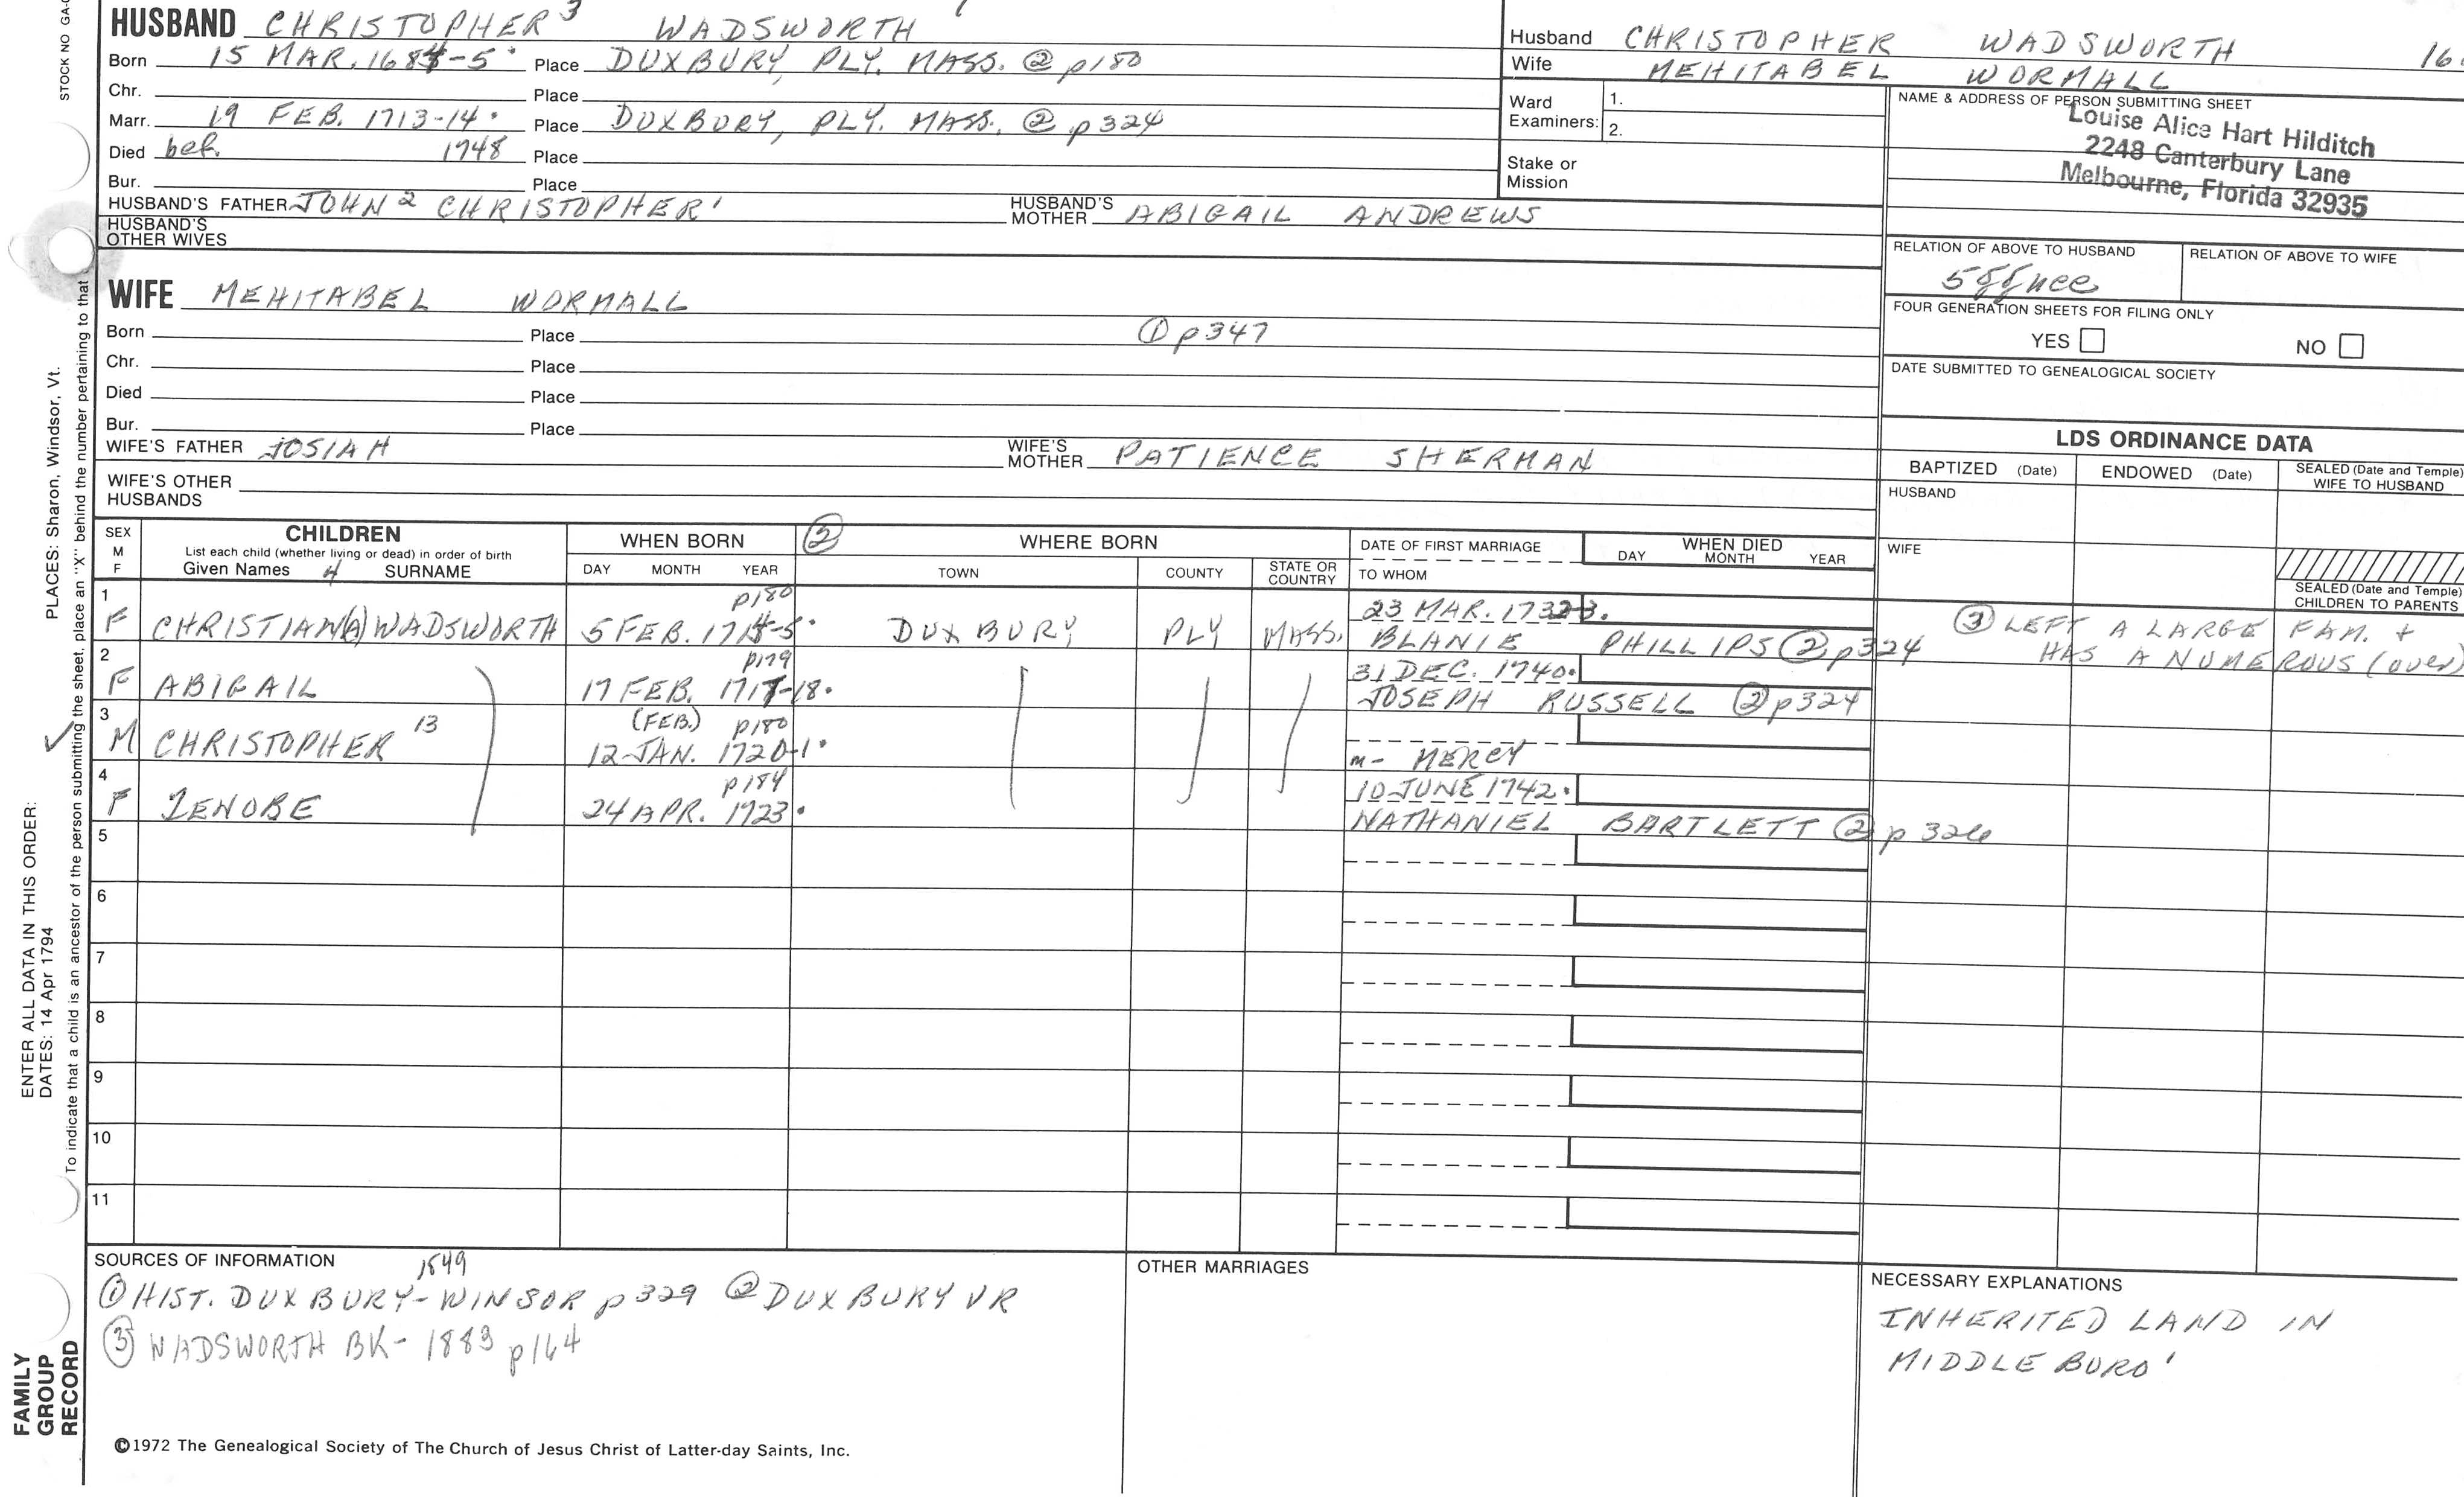 STOCK NO GA-
HUSBAND CHRISTOPHER³ WADSWORTH
Born 15 MAR. 1684-5 Place DUXBURY, PLY. MASS. ② p180
Chr. Place
Marr. 19 FEB. 1713-14 Place DUXBURY, PLY. MASS. ② p324
Died bef. 1748 Place
Bur. Place
HUSBAND'S FATHER JOHN² CHRISTOPHER¹ HUSBAND'S MOTHER ABIGAIL ANDREWS
HUSBAND'S OTHER WIVES
Husband CHRISTOPHER WADSWORTH 16
Wife MEHITABEL WORMALL
Ward Examiners: 1.
2.
Stake or Mission
NAME & ADDRESS OF PERSON SUBMITTING SHEET
Louise Alice Hart Hilditch
2248 Canterbury Lane
Melbourne, Florida 32935
RELATION OF ABOVE TO HUSBAND RELATION OF ABOVE TO WIFE
FOUR GENERATION SHEETS FOR FILING ONLY
YES NO
DATE SUBMITTED TO GENEALOGICAL SOCIETY
WIFE MEHITABEL WORMALL
Born Place ① p347
Chr. Place
Died Place
Bur. Place
WIFE'S FATHER JOSIAH WIFE'S MOTHER PATIENCE SHERMAN
WIFE'S OTHER HUSBANDS
LDS ORDINANCE DATA
BAPTIZED (Date) ENDOWED (Date) SEALED (Date and Temple) WIFE TO HUSBAND
HUSBAND
WIFE
SEALED (Date and Temple) CHILDREN TO PARENTS
SEX M F CHILDREN
List each child (whether living or dead) in order of birth
Given Names 4 SURNAME
WHEN BORN
DAY MONTH YEAR
② WHERE BORN
TOWN COUNTY STATE OR COUNTRY
DATE OF FIRST MARRIAGE
TO WHOM
WHEN DIED
DAY MONTH YEAR
1 p180 23 MAR. 1732-3.
F CHRISTIAN(A) WADSWORTH 5 FEB. 1714-5 DUXBURY PLY MASS. BLANIE PHILLIPS ② p324
③ LEFT A LARGE FAM. +
HAS A NUMEROUS (over)
2 p179 31 DEC. 1740.
F ABIGAIL 17 FEB. 1717-18. JOSEPH RUSSELL ② p324
3 (FEB.) p180
M CHRISTOPHER 13 12 JAN. 1720-1. m- MERCY
4 p184 10 JUNE 1742.
F ZENOBE 24 APR. 1723. NATHANIEL BARTLETT ② p 326
5
6
7
8
9
10
11
SOURCES OF INFORMATION 1849
① HIST. DUXBURY-WINSOR p 329 ② DUXBURY VR
③ WADSWORTH BK- 1883 p164
OTHER MARRIAGES
NECESSARY EXPLANATIONS
INHERITED LAND IN
MIDDLEBORO'
©1972 The Genealogical Society of The Church of Jesus Christ of Latter-day Saints, Inc.
FAMILY
GROUP
RECORD
ENTER ALL DATA IN THIS ORDER:
DATES: 14 Apr 1794
PLACES: Sharon, Windsor, Vt.
To indicate that a child is an ancestor of the person submitting the sheet, place an "X" behind the number pertaining to that